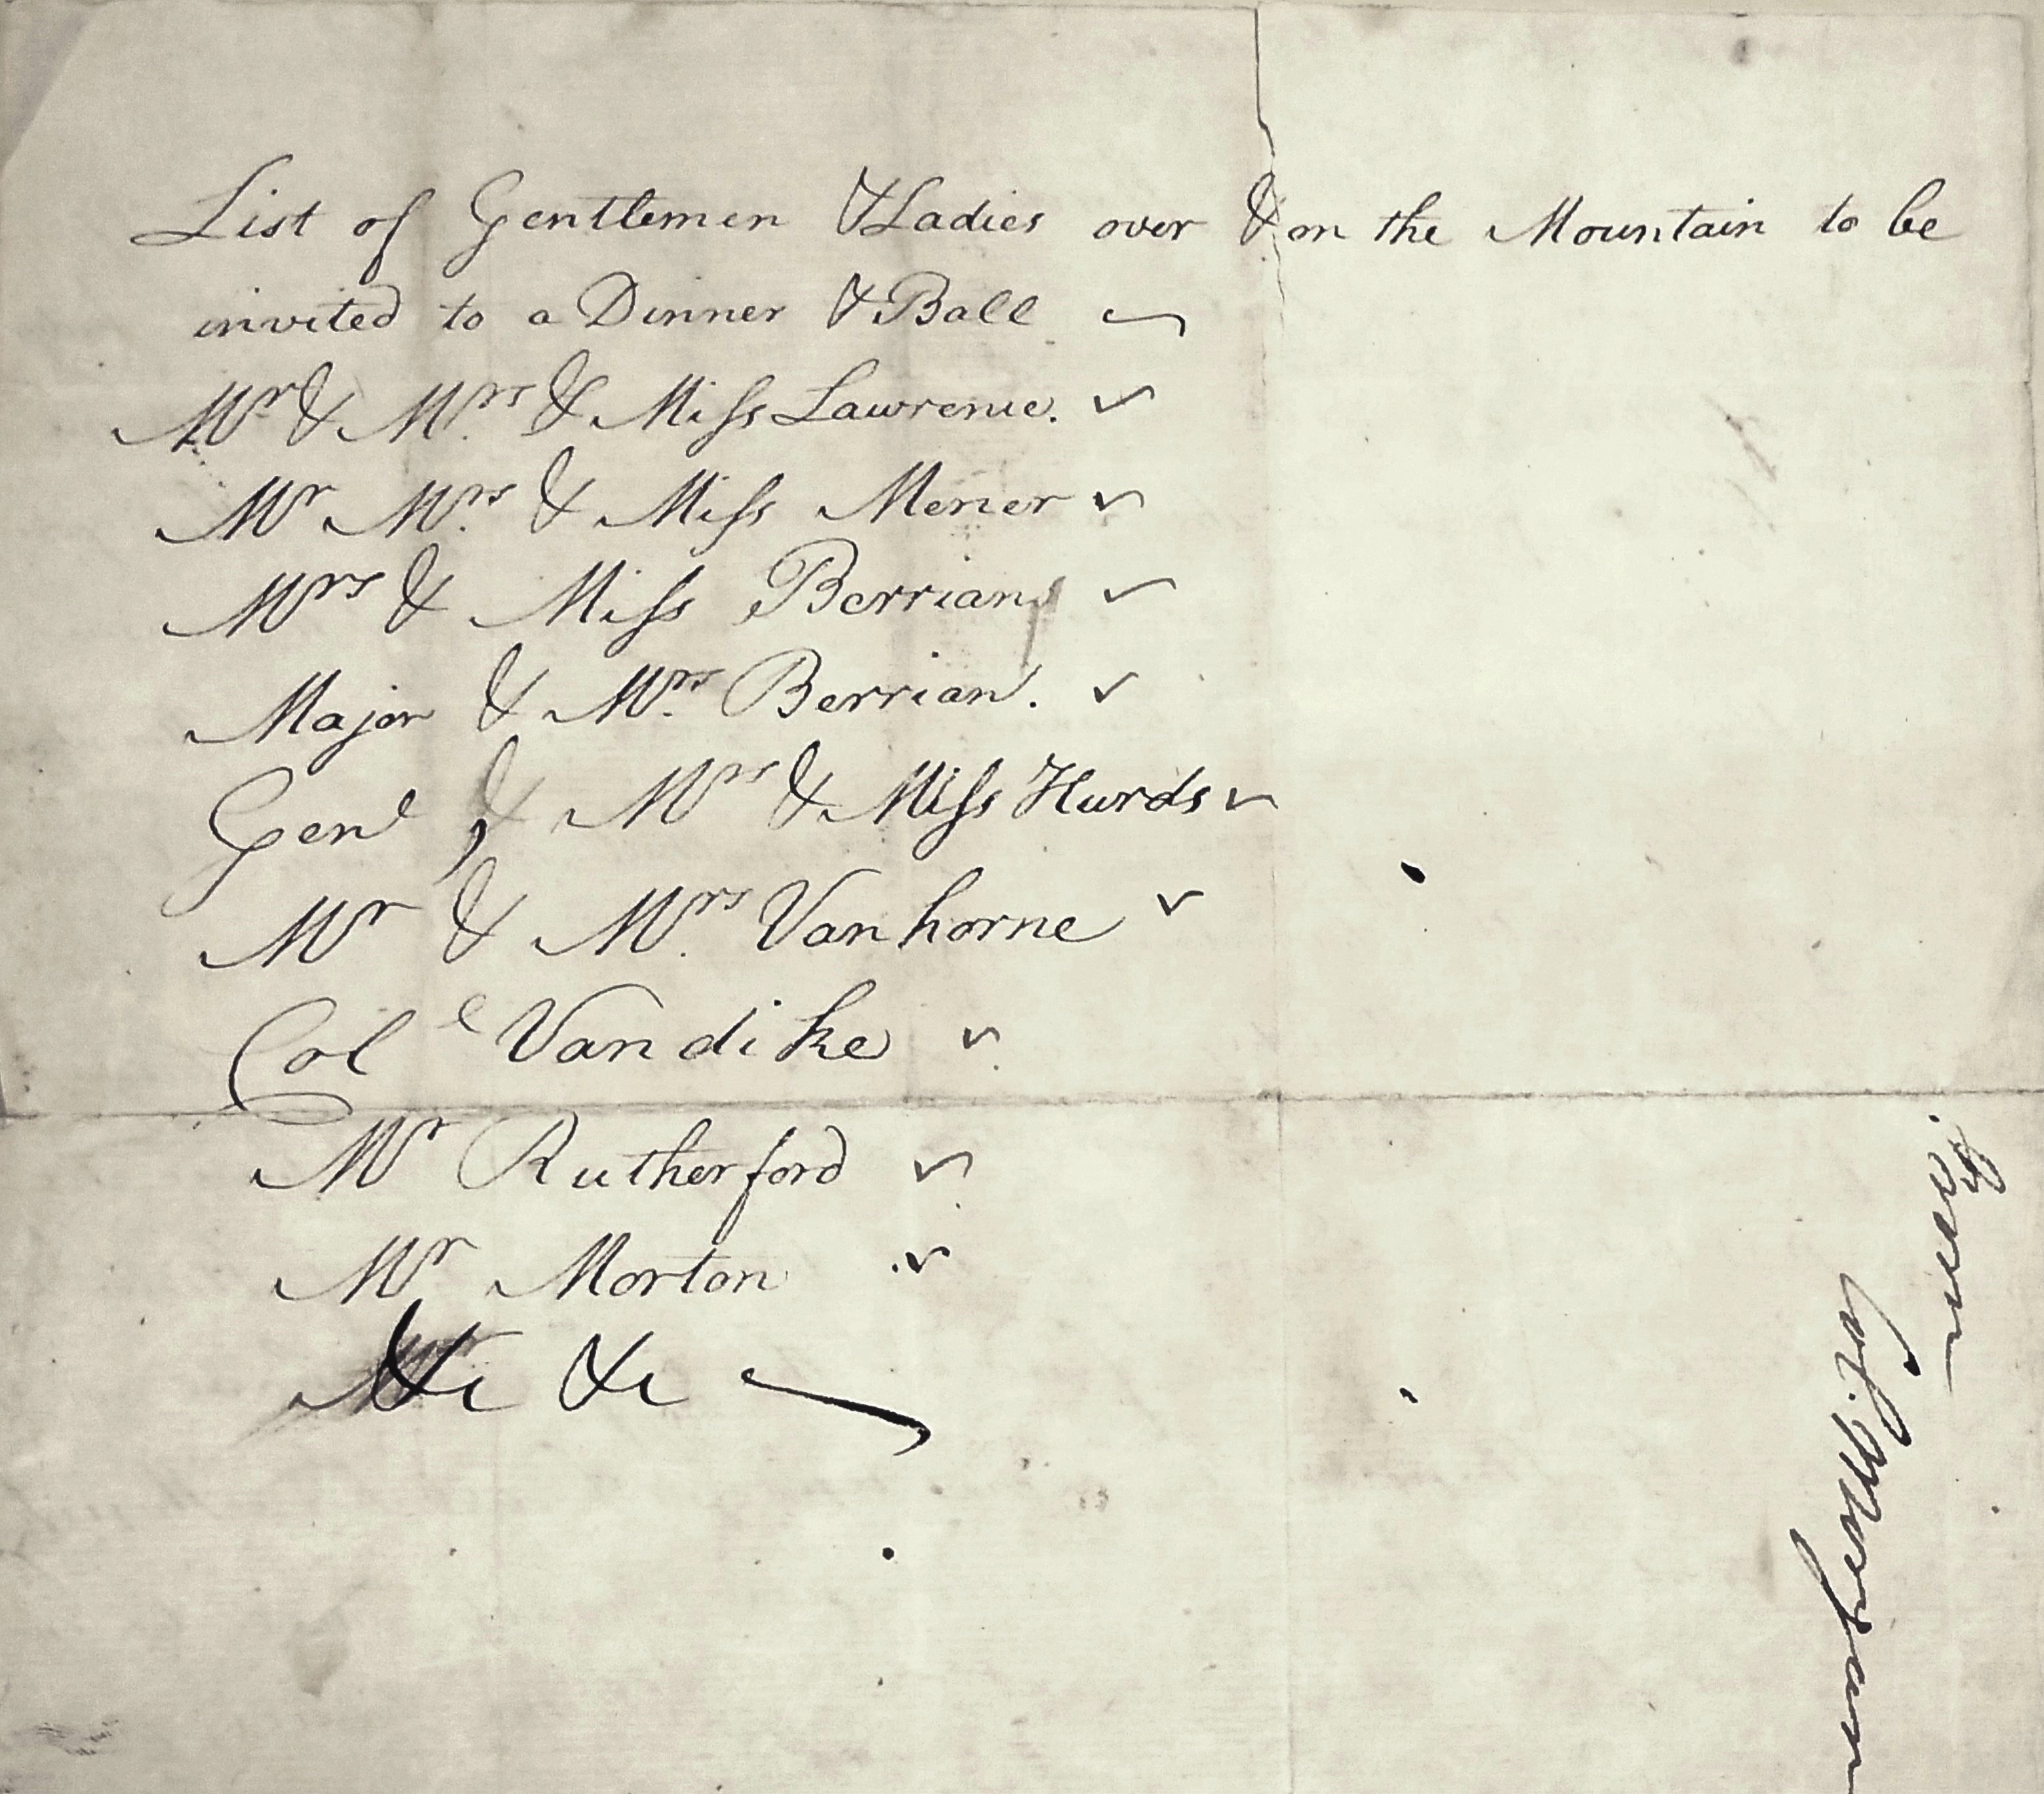 List of Gentlemen & Ladies over & on the Mountain to be
invited to a Dinner & Ball
Mr & Mrs & Miss Lawrence. ✓
Mr Mrs & Miss Mener ✓
Mrs & Miss Berrians ✓
Major & Mrs Berrian. ✓
Genl & Mrs & Miss Hurds ✓
Mr & Mrs Vanhorne ✓
Coll Vandike ✓
Mr Rutherford ✓
Mr Morton ✓
&c &c